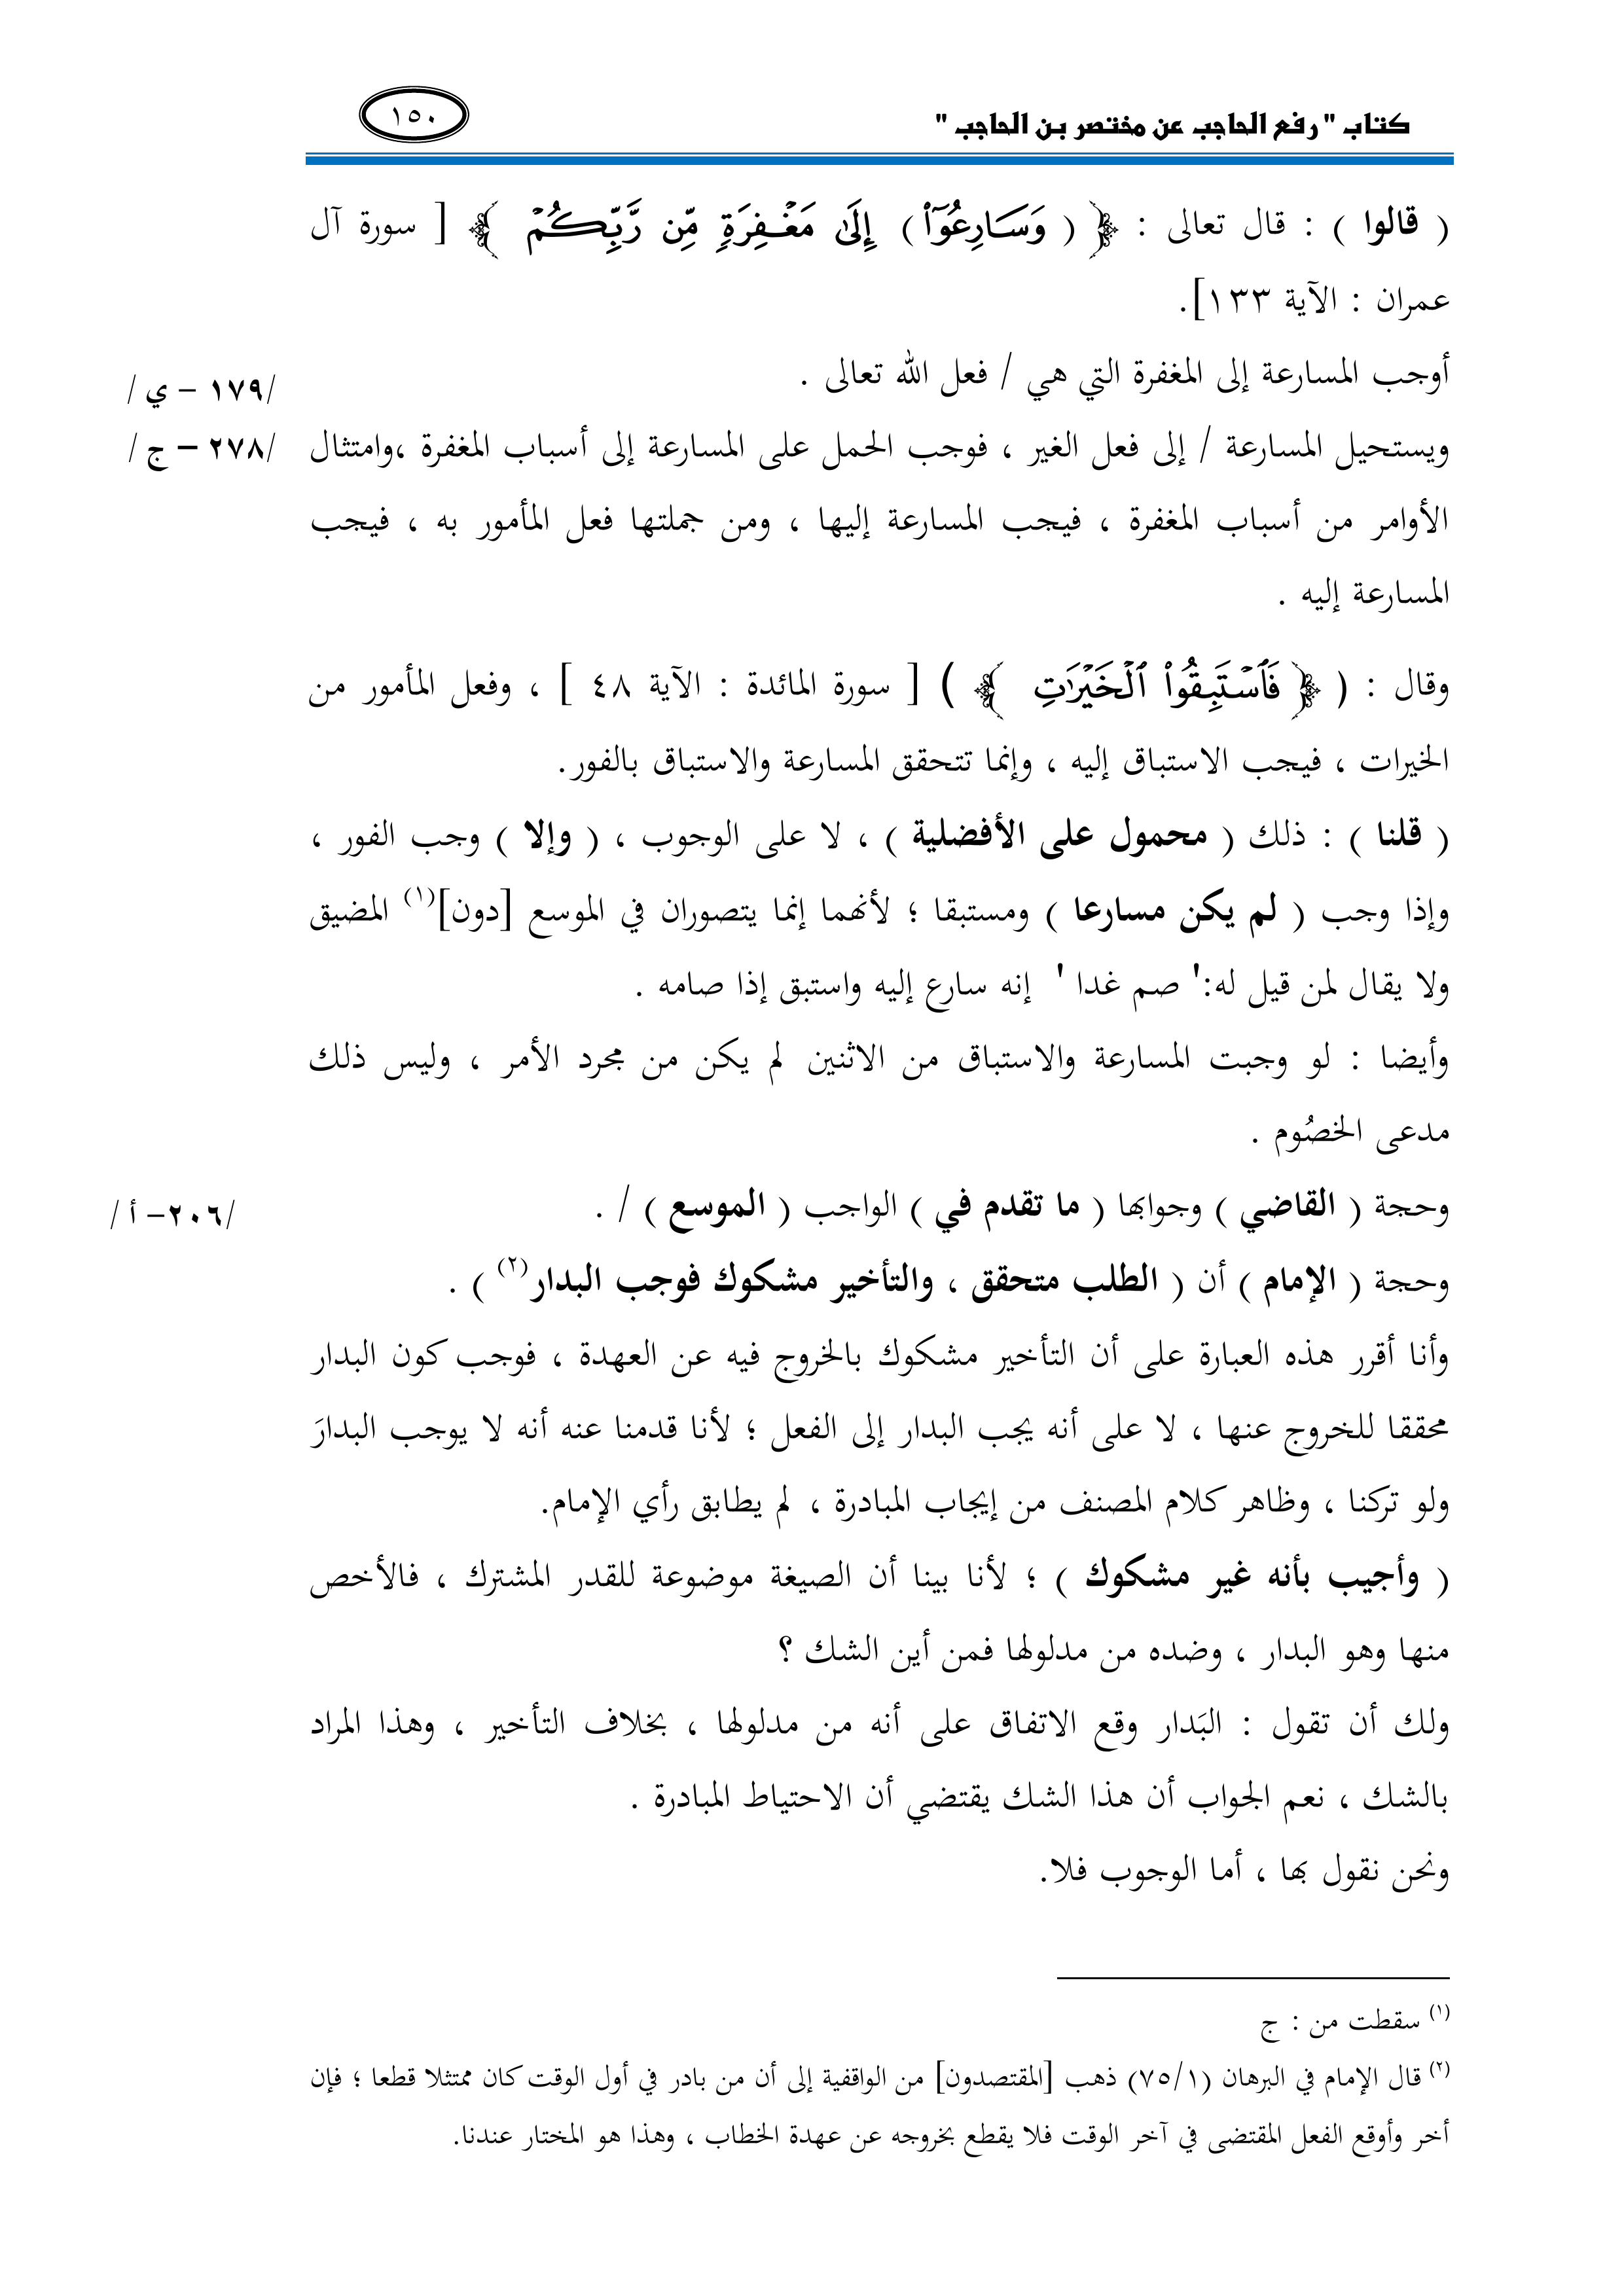 كتاب " رفع الحاجب عن مختصر بن الحاجب "
١٥٠
( قالوا ) : قال تعالى : ﴿ ( وَسَارِعُوٓاْ ) إِلَىٰ مَغۡفِرَةٖ مِّن رَّبِّكُمۡ ﴾ [ سورة آل
عمران : الآية ١٣٣].
أوجب المسارعة إلى المغفرة التي هي / فعل الله تعالى .
/١٧٩ – ي /
ويستحيل المسارعة / إلى فعل الغير ، فوجب الحمل على المسارعة إلى أسباب المغفرة ،وامتثال
/٢٧٨ – ج /
الأوامر من أسباب المغفرة ، فيجب المسارعة إليها ، ومن جملتها فعل المأمور به ، فيجب
المسارعة إليه .
وقال : ( ﴿ فَٱسۡتَبِقُواْ ٱلۡخَيۡرَٰتِ ﴾ ) [ سورة المائدة : الآية ٤٨ ] ، وفعل المأمور من
الخيرات ، فيجب الاستباق إليه ، وإنما تتحقق المسارعة والاستباق بالفور.
( قلنا ) : ذلك ( محمول على الأفضلية ) ، لا على الوجوب ، ( وإلا ) وجب الفور ،
وإذا وجب ( لم يكن مسارعا ) ومستبقا ؛ لأنهما إنما يتصوران في الموسع [دون](١) المضيق
ولا يقال لمن قيل له:' صم غدا ' إنه سارع إليه واستبق إذا صامه .
وأيضا : لو وجبت المسارعة والاستباق من الاثنين لم يكن من مجرد الأمر ، وليس ذلك
مدعى الخصُوم .
وحجة ( القاضي ) وجوابها ( ما تقدم في ) الواجب ( الموسع ) / .
/٢٠٦– أ /
وحجة ( الإمام ) أن ( الطلب متحقق ، والتأخير مشكوك فوجب البدار(٢) ) .
وأنا أقرر هذه العبارة على أن التأخير مشكوك بالخروج فيه عن العهدة ، فوجب كون البدار
محققا للخروج عنها ، لا على أنه يجب البدار إلى الفعل ؛ لأنا قدمنا عنه أنه لا يوجب البدارَ
ولو تركنا ، وظاهر كلام المصنف من إيجاب المبادرة ، لم يطابق رأي الإمام.
( وأجيب بأنه غير مشكوك ) ؛ لأنا بينا أن الصيغة موضوعة للقدر المشترك ، فالأخص
منها وهو البدار ، وضده من مدلولها فمن أين الشك ؟
ولك أن تقول : البَدار وقع الاتفاق على أنه من مدلولها ، بخلاف التأخير ، وهذا المراد
بالشك ، نعم الجواب أن هذا الشك يقتضي أن الاحتياط المبادرة .
ونحن نقول بها ، أما الوجوب فلا.
(١) سقطت من : ج
(٢) قال الإمام في البرهان (٧٥/١) ذهب [المقتصدون] من الواقفية إلى أن من بادر في أول الوقت كان ممتثلا قطعا ؛ فإن
أخر وأوقع الفعل المقتضى في آخر الوقت فلا يقطع بخروجه عن عهدة الخطاب ، وهذا هو المختار عندنا.